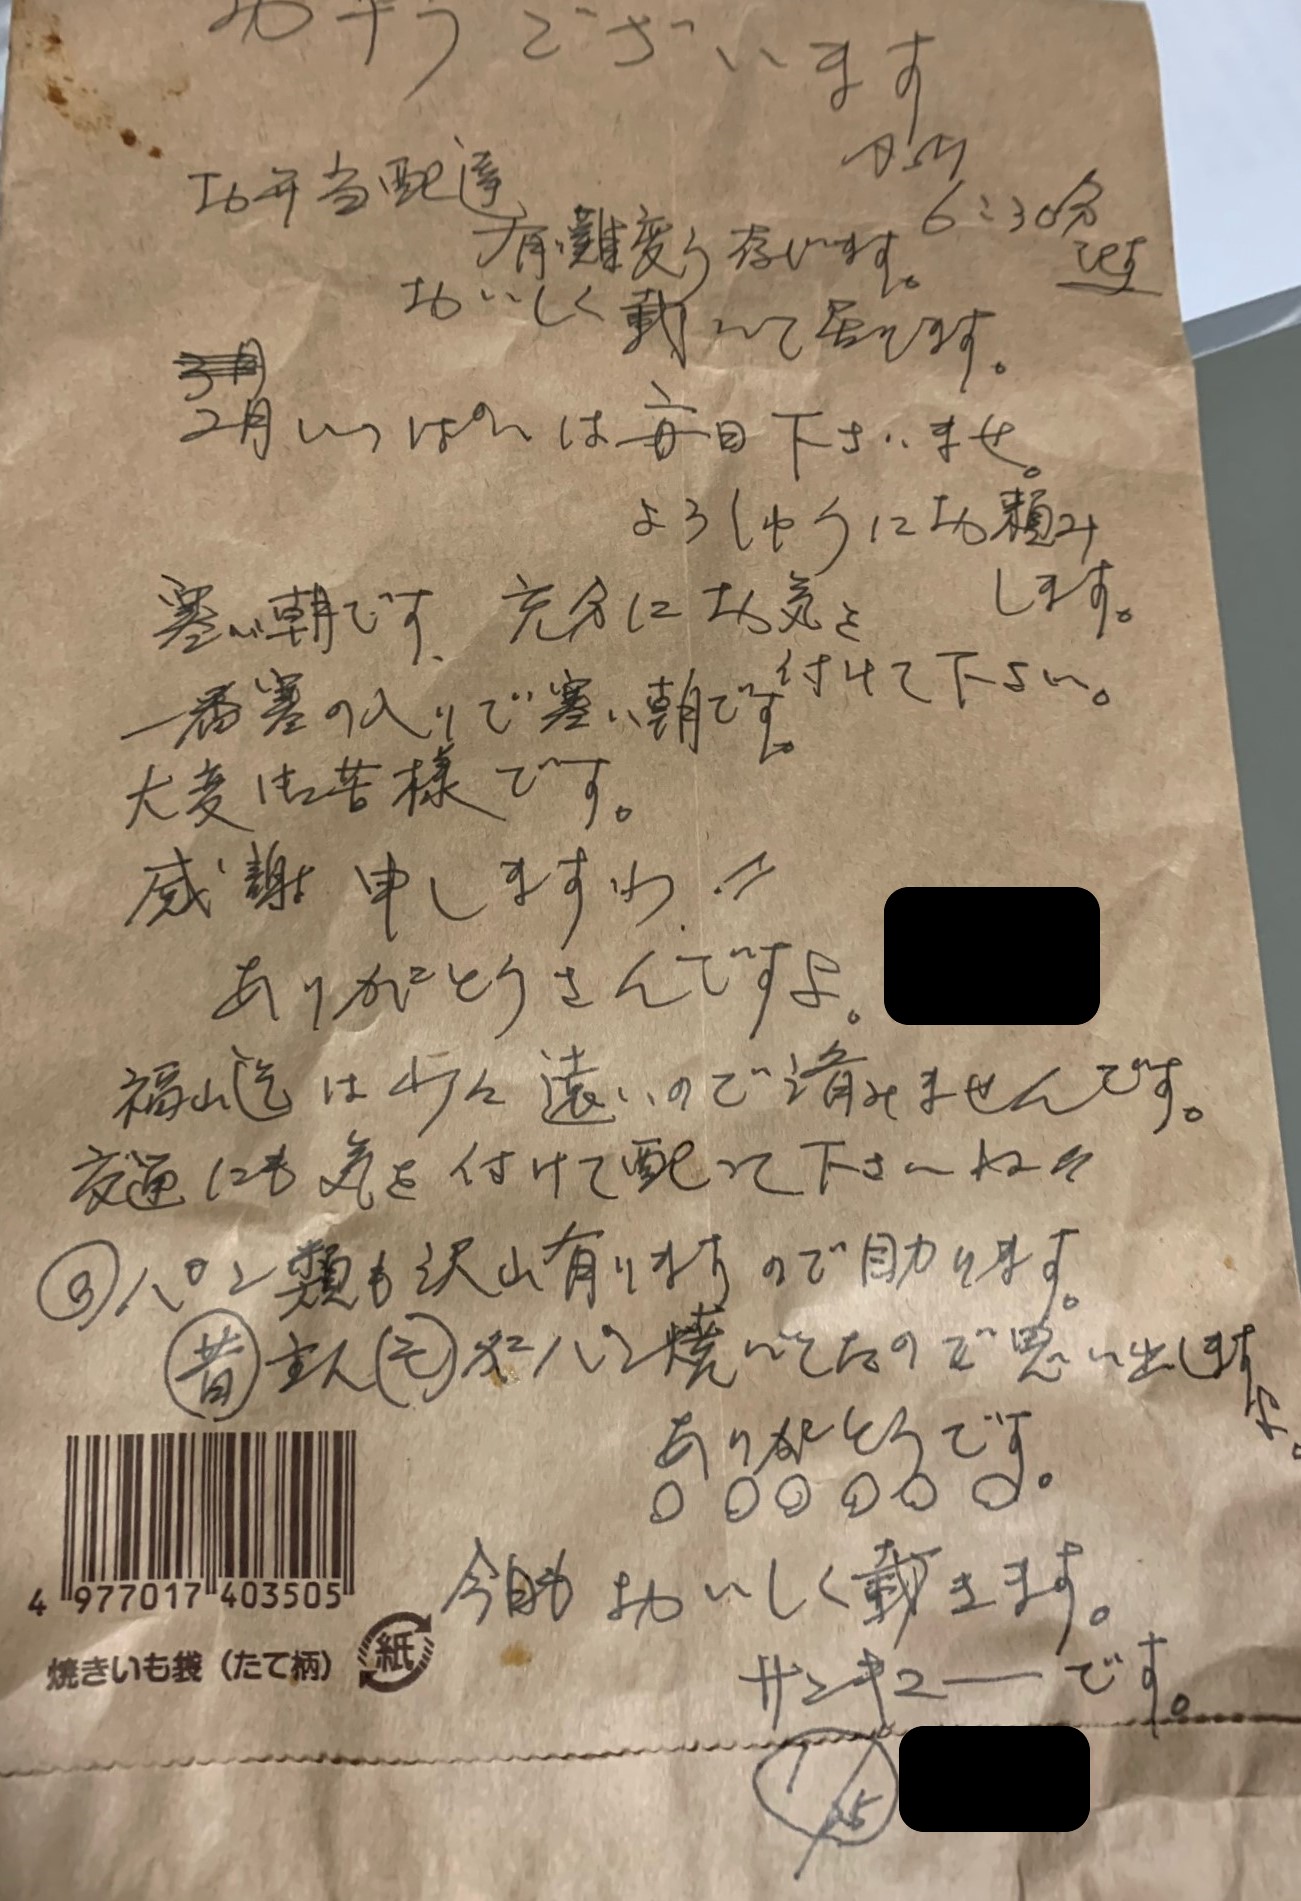 お早うございます
6:30分
です
お弁当配達
有難変う存じます。
おいしく載いて居ります。
3月
2月いっぱいは毎日下さいませ。
よろしゅうにお頼み
します。
寒い朝です、充分にお気を
付けて下さい。
一番寒の入りで寒い朝です。
大変御苦様です。
感謝申しますわ!!
ありがとうさんですよ。
福山迄は遠いので済みませんです。
交通にも気を付けて配って下さいね
パン類も沢山有りますので助ります。
昔主人がパン焼いてたので思い出します
よ。
ありがとうです。
今日もおいしく載きます。
サンキューです。
1/25
4 977017 403505
焼きいも袋（たて柄） 紙